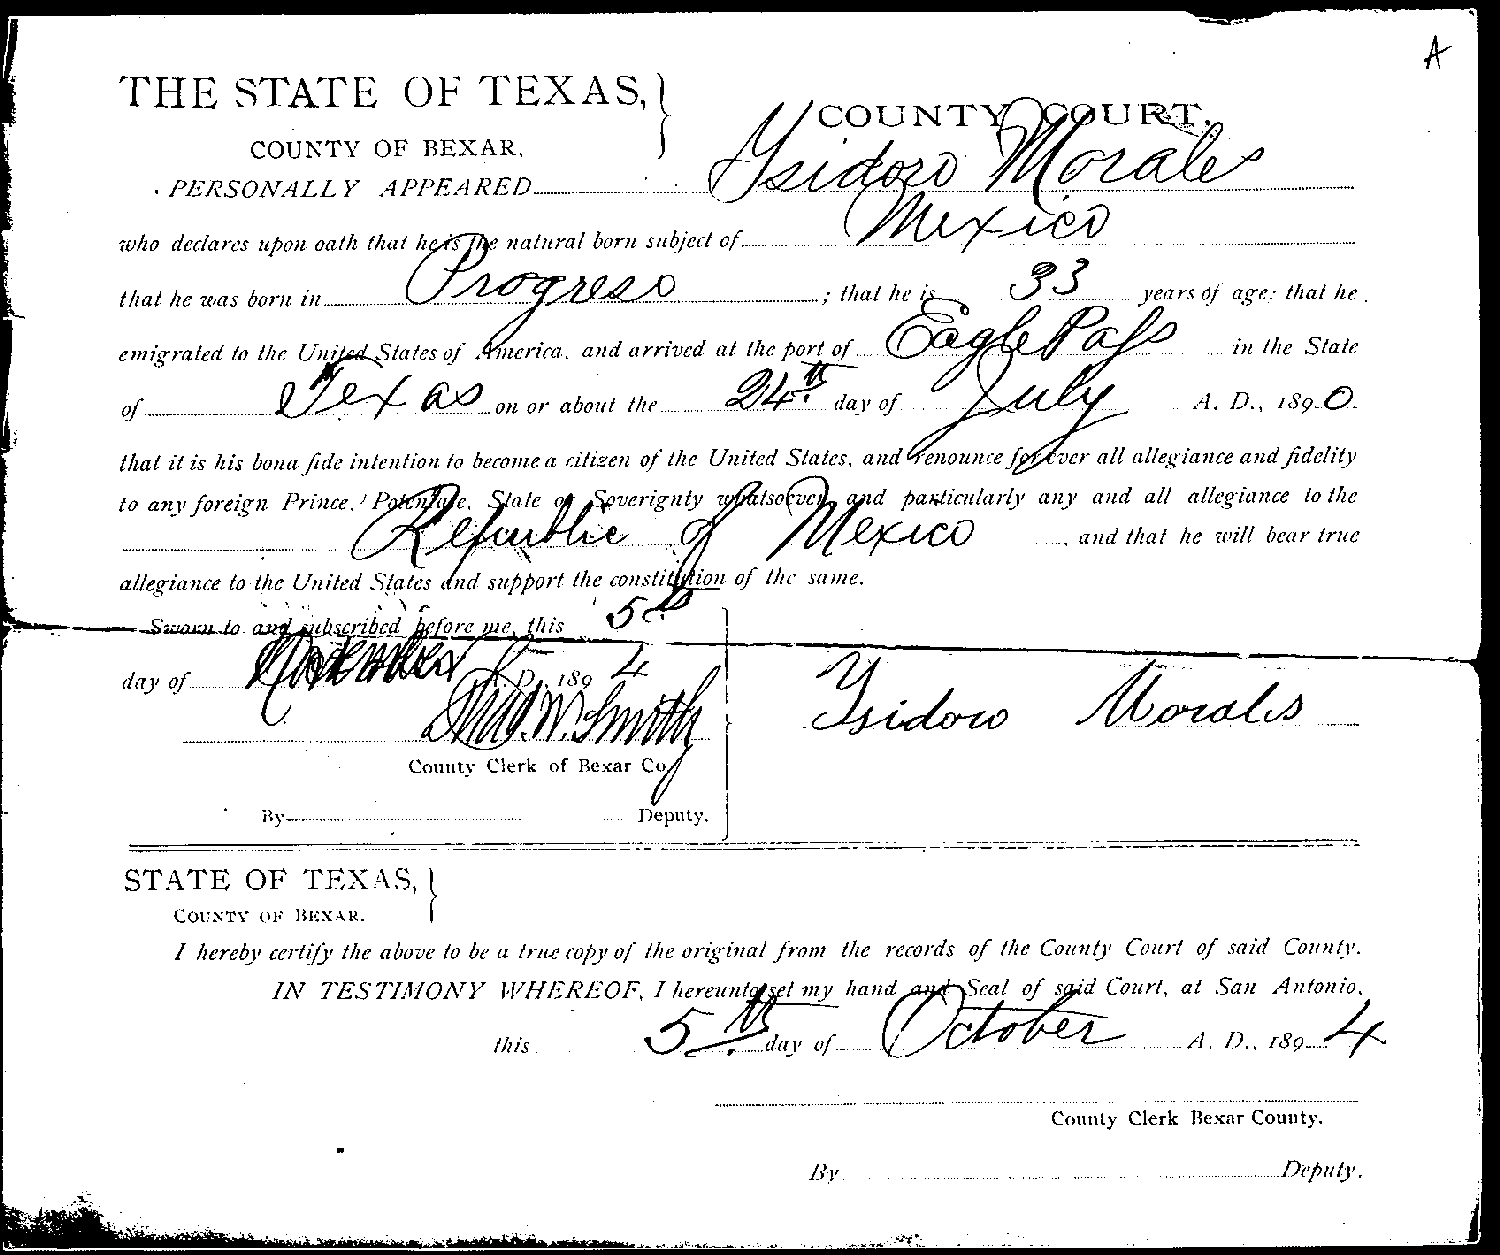 A
THE STATE OF TEXAS,
COUNTY OF BEXAR.
COUNTY COURT.
PERSONALLY APPEARED Ysidoro Morales
who declares upon oath that he is the natural born subject of Mexico
that he was born in Progreso ; that he is 33 years of age; that he
emigrated to the United States of America, and arrived at the port of Eagle Pass in the State
of Texas on or about the 24th. day of July A. D., 1890.
that it is his bona fide intention to become a citizen of the United States, and renounce forever all allegiance and fidelity
to any foreign Prince, Potentate, State or Soverignty whatsoever, and particularly any and all allegiance to the
Republic of Mexico , and that he will bear true
allegiance to the United States and support the constitution of the same.
Sworn to and subscribed before me, this 5th
day of A. D., 1894
Thad. W. Smith
County Clerk of Bexar Co.
By Deputy.
Ysidoro Morales
STATE OF TEXAS,
COUNTY OF BEXAR.
I hereby certify the above to be a true copy of the original from the records of the County Court of said County.
IN TESTIMONY WHEREOF, I hereunto set my hand and Seal of said Court, at San Antonio,
this 5th. day of October A. D., 1894
County Clerk Bexar County.
By Deputy.